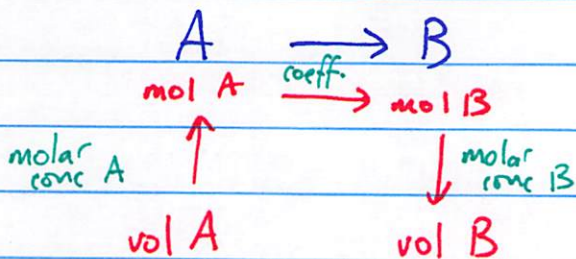 A → B
coeff.
mol A → mol B
molar conc A
molar conc B
vol A vol B